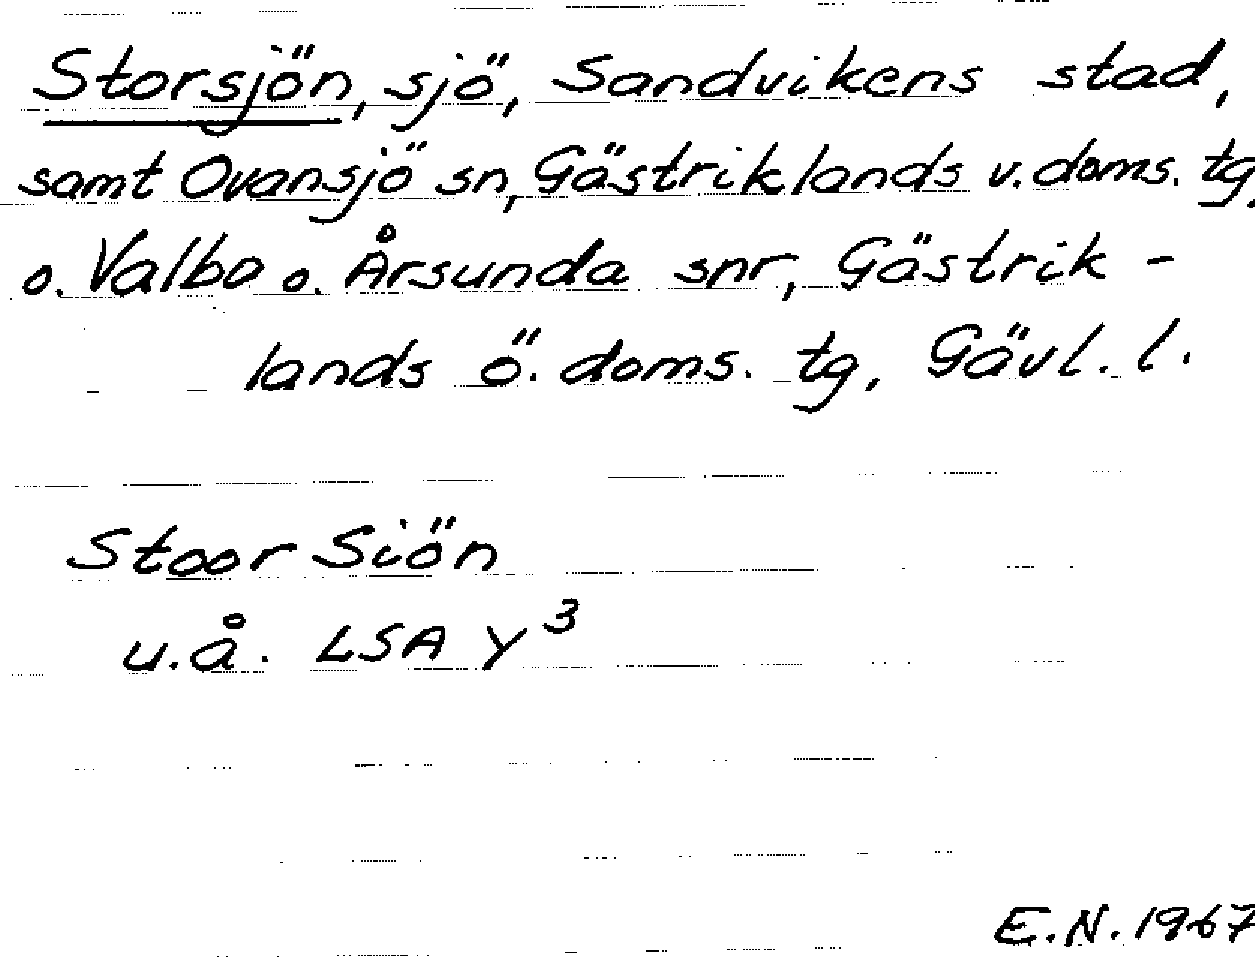 Storsjön, sjö, Sandvikens stad,
samt Ovansjö sn, Gästriklands v. doms. tg,
o. Valbo o. Årsunda snr, Gästrik-
lands ö. doms. tg, Gävl. l.
Stoor Siön
u.å. LSA Y³
E.N. 1967